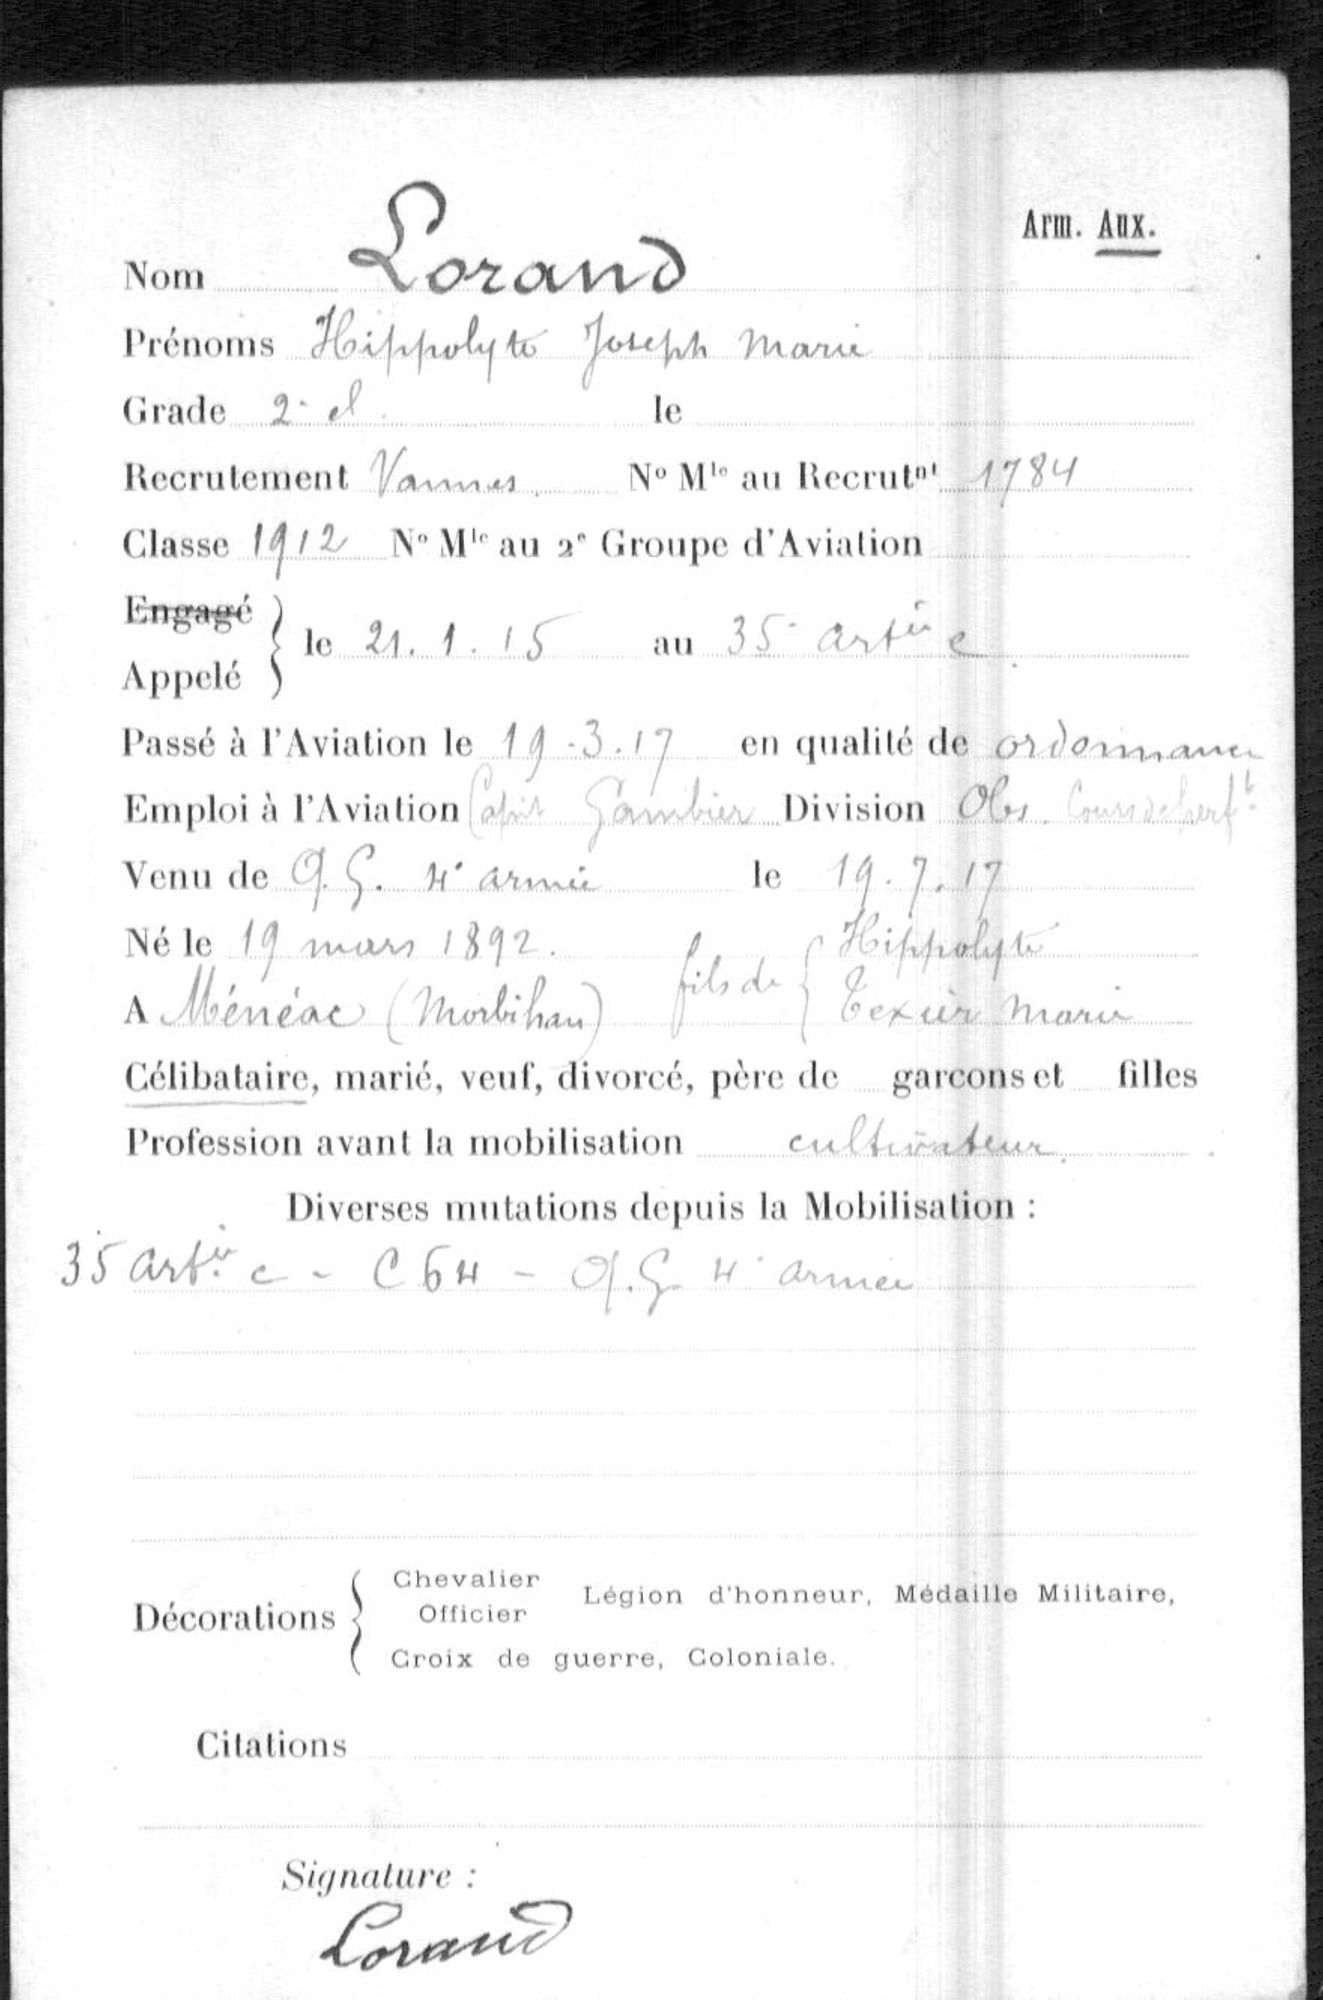 Arm. Aux.
Nom Lorand
Prénoms Hippolyte Joseph Marie
Grade 2e cl. le
Recrutement Vannes. No Mle au Recrutnt 1784
Classe 1912 No Mle au 2e Groupe d'Aviation
Engagé
Appelé } le 21.1.15 au 35e artie c
Passé à l'Aviation le 19.3.17 en qualité de ordonnance
Emploi à l'Aviation Capit Gambier Division Obs. Cours de perft
Venu de Q.G. 4e armée le 19.7.17
Né le 19 mars 1892. fils de { Hippolyte
A Ménéac (Morbihan) Texier Marie
Célibataire, marié, veuf, divorcé, père de garçons et filles
Profession avant la mobilisation cultivateur.
Diverses mutations depuis la Mobilisation :
35 artie c - C 64 - Q.G 4e armée
Décorations { Chevalier Légion d'honneur, Médaille Militaire,
Officier
Croix de guerre, Coloniale.
Citations
Signature :
Lorand